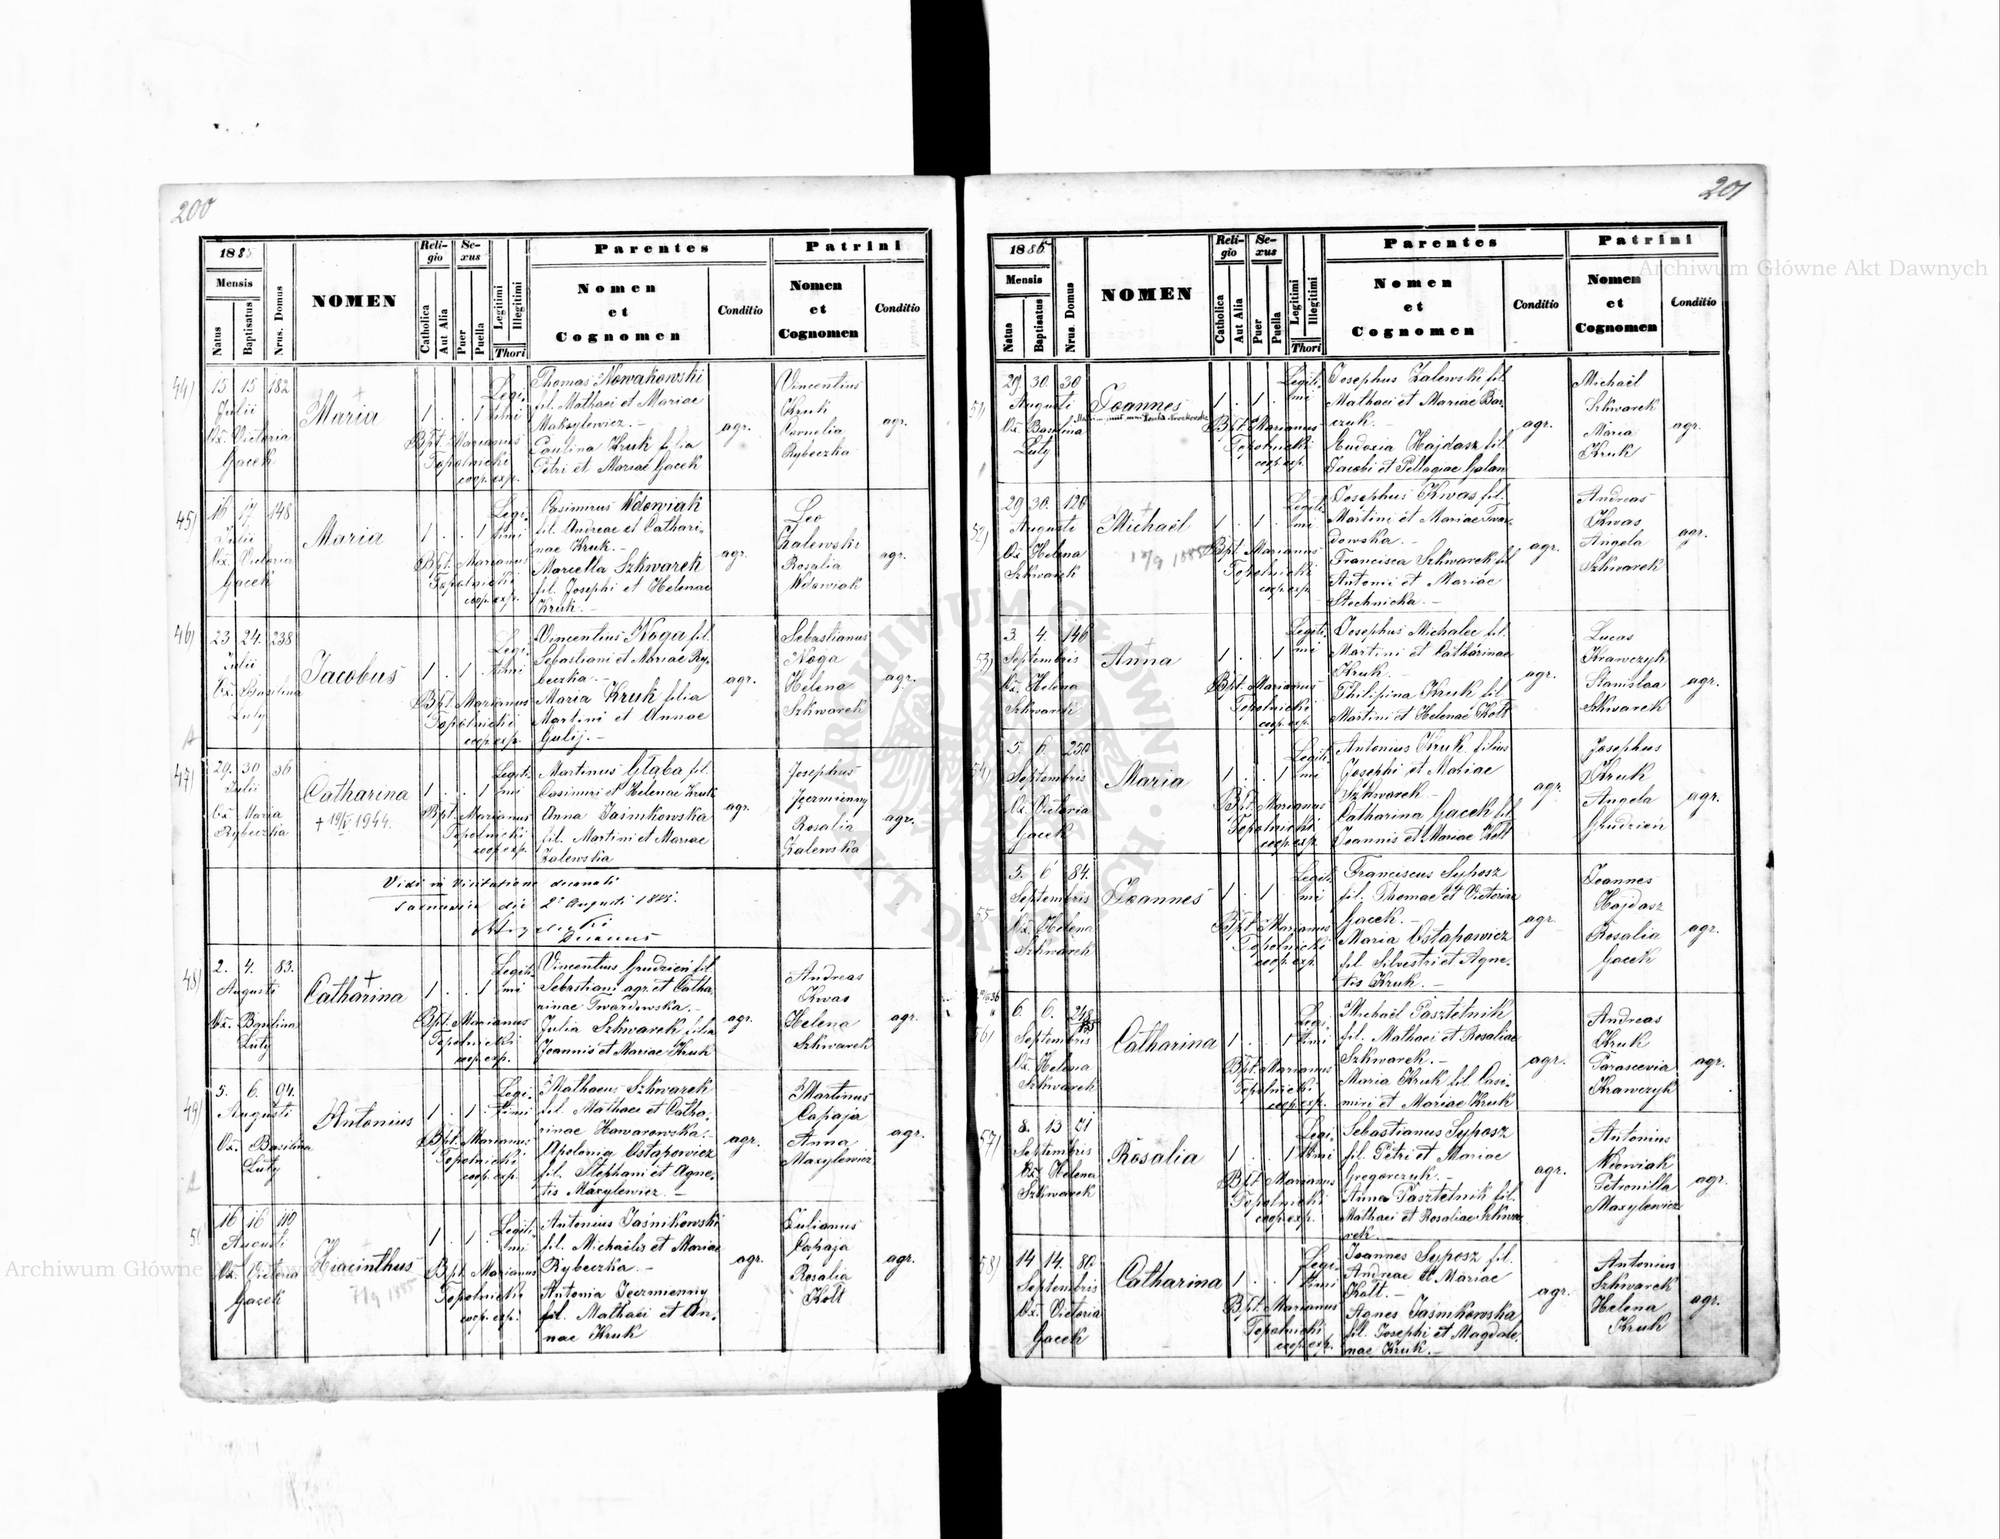 200
1885
Mensis
Natus
Baptisatus
Nrus. Domus
NOMEN
Religio
Catholica
Aut Alia
Sexus
Puer
Puella
Legitimi
Illegitimi
Thori
Parentes
Nomen
et
Cognomen
Conditio
Patrini
Nomen
et
Cognomen
Conditio
44)
15 15 182
Julii
Ob. Victoria
Gacek
Maria
1 . . 1
Legi-
timi
Bpt. Marianus
Topolnicki
coop. exp.
Thomas Nowakowski
fil. Mathaei et Mariae
Maksylewicz.-
Paulina Kruk filia
Petri et Mariae Gacek
agr.
Vincentius
Kruk
Cornelia
Rybeczka
agr.
45)
16 17 148
Julii
Ob. Victoria
Gacek
Maria
1 . . 1
Legi-
timi
Bpt. Marianus
Topolnicki
coop. exp.
Casimirus Wdowiak
fil. Andreae et Cathari-
nae Kruk.-
Marcella Szkwarek
fil. Josephi et Helenae
Kruk.-
agr.
Leo
Zalewski
Rosalia
Wdowiak
agr.
46)
23. 24. 238
Julii
Ob. Basilina
Luty
Jacobus
1 . 1 .
Legi-
timi
Bpt. Marianus
Topolnicki
coop. exp.
Vincentius Noga fil.
Sebastiani et Mariae Ry-
beczka.-
Maria Kruk filia
Martini et Annae
Gulij.-
agr.
Sebastianus
Noga
Helena
Szkwarek
agr.
47)
29. 30 36
Julii
Ob. Maria
Rybeczka
Catharina
+ 19/5 1944.
1 . . 1
Legiti-
mi
Bpt. Marianus
Topolnicki
coop. exp.
Martinus Głąba fil.
Casimiri et Helenae Kruk
Anna Jaśnikowska
fil. Martini et Mariae
Zalewska
agr.
Josephus
Jeermienny
Rosalia
Zalewska
agr.
Vidi in Visitatione decanali
die 2 Augusti 1885.
Decanus
48)
2. 4. 83.
Augusti
Ob. Basilina
Luty
Catharina
1 . . 1
Legiti-
mi
Bpt. Marianus
Topolnicki
coop. exp.
Vincentius Grudzień fil.
Sebastiani agr. et Catha-
rinae Twardowska.-
Julia Szkwarek filia
Joannis et Mariae Kruk
agr.
Andreas
Kwas
Helena
Szkwarek
agr.
49)
5. 6. 94.
Augusti
Ob. Basilina
Luty
Antonius
1 . 1 .
Legi-
timi
Bpt. Marianus
Topolnicki
coop. exp.
Mathaeus Szkwarek
fil. Mathaei et Catha-
rinae Hawarowska.-
Apolonia Ostapowicz
fil. Stephani et Agne-
tis Maxylewicz.-
agr.
Martinus
Capaja
Anna
Maxylewicz
agr.
16 16 110
Augusti
Ob. Victoria
Gacek
Hiacinthus
7/9 1885
1 . 1 .
Legiti-
mi
Bpt. Marianus
Topolnicki
coop. exp.
Antonius Jaśnikowski
fil. Michaelis et Mariae
Rybeczka.-
Antonia Jeermienny
fil. Mathaei et An-
nae Kruk
agr.
Julianus
Capaja
Rosalia
Kott
agr.
201
1885
Mensis
Natus
Baptisatus
Nrus. Domus
NOMEN
Religio
Catholica
Aut Alia
Sexus
Puer
Puella
Legitimi
Illegitimi
Thori
Parentes
Nomen
et
Cognomen
Conditio
Patrini
Nomen
et
Cognomen
Conditio
51)
29. 30. 30
Augusti
Ob. Basilina
Luty
Joannes
1 . 1 .
Legiti-
mi
Bpt. Marianus
Topolnicki
coop. exp.
Josephus Zalewski fil.
Mathaei et Mariae Bar-
czuk.-
Eudoxia Hajdasz fil.
Jacobi et Pellagiae Galan
agr.
Michaël
Szkwarek
Maria
Kruk
agr.
52)
29. 30. 120
Augusti
Ob. Helena
Szkwarek
Michaël
12/9 1885
1 . 1 .
Legiti-
mi
Bpt. Marianus
Topolnicki
coop. exp.
Josephus Kwas fil.
Martini et Mariae Twar-
dowska.-
Francisca Szkwarek fil.
Antonii et Mariae
Stechnicka.-
agr.
Andreas
Kwas
Angela
Szkwarek
agr.
53)
3. 4. 146
Septembris
Ob. Helena
Szkwarek
Anna
1 . . 1
Legiti-
mi
Bpt. Marianus
Topolnicki
coop. exp.
Josephus Michalec fil.
Martini et Catharinae
Kruk.-
Philipina Kruk fil.
Martini et Helenae Kott
agr.
Lucas
Krawczyk
Stanislaa
Szkwarek
agr.
54)
5. 6. 250
Septembris
Ob. Victoria
Gacek
Maria
1 . . 1
Legiti-
mi
Bpt. Marianus
Topolnicki
coop. exp.
Antonius Kruk filius
Josephi et Mariae
Szkwarek.-
Catharina Gacek fil.
Joannis et Mariae Kott
agr.
Josephus
Kruk
Angela
Grudzień
agr.
55
5. 6 84.
Septembris
Ob. Helena
Szkwarek
Joannes
1 . 1 .
Legiti-
mi
Bpt. Marianus
Topolnicki
coop. exp.
Franciscus Syposz
fil. Thomae et Victoriae
Gacek.-
Maria Ostapowicz
fil. Silvestri et Agne-
tis Kruk.-
agr.
Joannes
Hajdasz
Rosalia
Gacek
agr.
56)
6. 6. 248
Septembris
Ob. Helena
Szkwarek
Catharina
1 . . 1
Legi-
timi
Bpt. Marianus
Topolnicki
coop. exp.
Michaël Pasztetnik
fil. Mathaei et Rosaliae
Szkwarek.-
Maria Kruk fil. Casi-
miri et Mariae Kruk
agr.
Andreas
Kruk
Parascevia
Krawczyk
agr.
57)
8. 13 71
Septembris
Ob. Helena
Szkwarek
Rosalia
1 . . 1
Legi-
timi
Bpt. Marianus
Topolnicki
coop. exp.
Sebastianus Syposz
fil. Petri et Mariae
Gregorczuk.-
Anna Pasztetnik fil.
Mathaei et Rosaliae Szkwa-
rek.-
agr.
Antonius
Wdowiak
Petronilla
Maxylewicz
agr.
58)
14 14. 80
Septembris
Ob. Victoria
Gacek
Catharina
1 . . 1
Legi-
timi
Bpt. Marianus
Topolnicki
coop. exp.
Joannes Syposz fil.
Andreae et Mariae
Kott.-
Agnes Jaśnikowska
fil. Josephi et Magdale-
nae Kruk.-
agr.
Antonius
Szkwarek
Helena
Kruk
agr.
Archiwum Główne Akt Dawnych
Archiwum Główne Akt Dawnych
ARCHIWUM GŁÓWNE AKT DAWNYCH